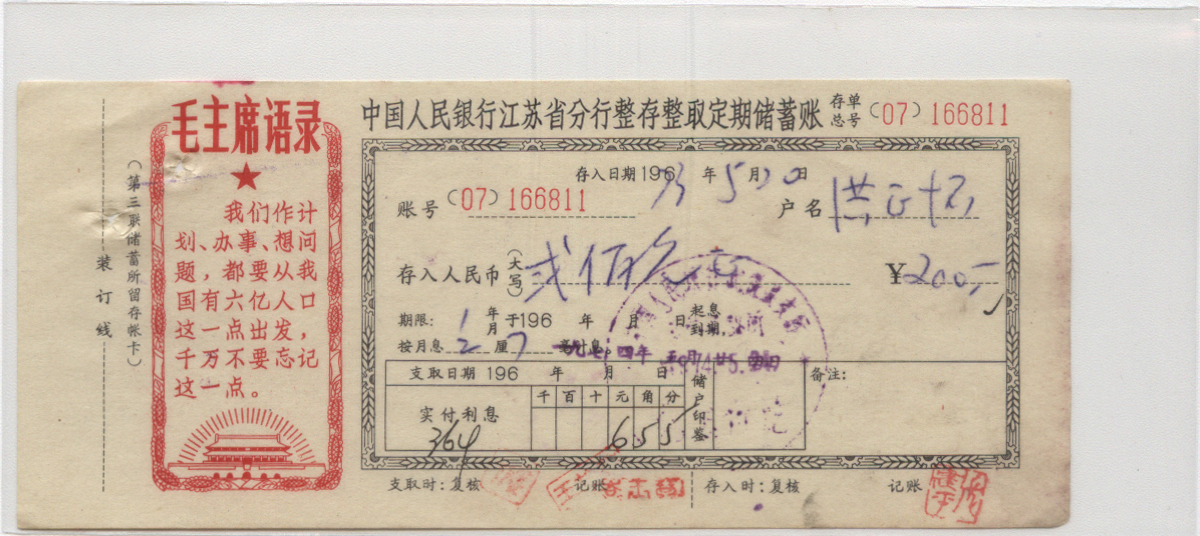 毛主席语录
我们作计
划、办事、想问
题，都要从我
国有六亿人口
这一点出发，
千万不要忘记
这一点。
（第三联储蓄所留存帐卡）
装订线
中国人民银行江苏省分行整存整取定期储蓄账
存单总号 (07) 166811
存入日期196 73 年 5 月 20 日
账号 (07) 166811 户名 洪
存入人民币（大写） 弍佰元 ¥200
期限： 1 年月于196 年 月 日起息到期，
按月息 2 厘 7 毫计息。
一九七四年
支取日期 196 年 月 日 储户印鉴 备注：
千 百 十 元 角 分
实付利息 6 5 5
364
支取时：复核 记账 存入时：复核 记账